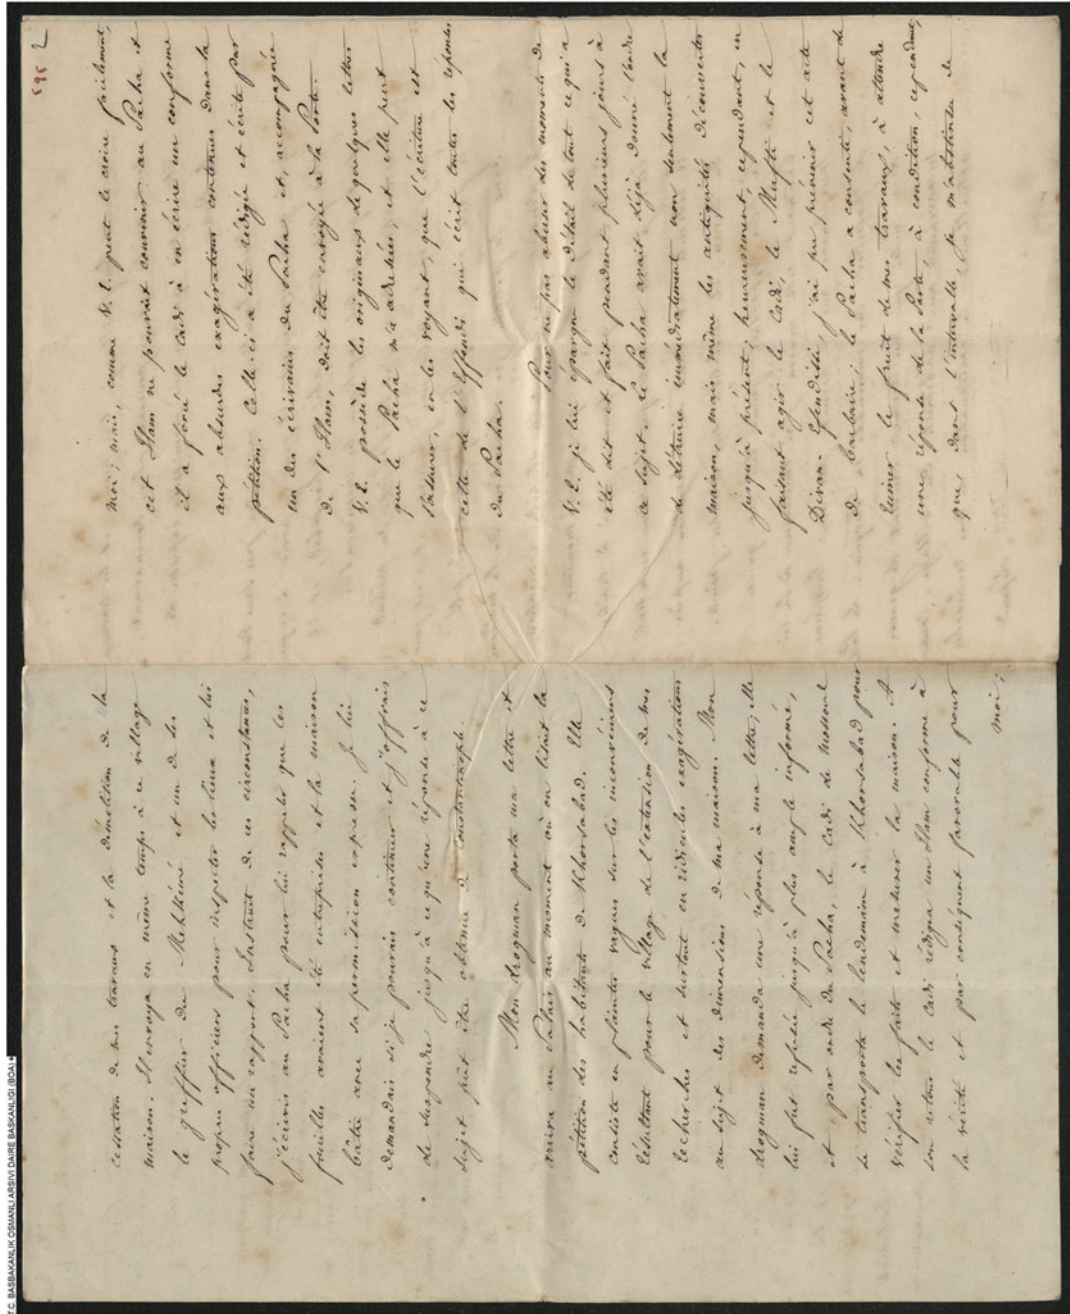 cessation de mes travaux et la démolition de la
maison. Il envoya en même temps à ce village
le greffier du Mehkémé et un de ses
propres officiers pour inspecter les lieux et lui
faire un rapport. Instruit de ces circonstances,
j'écrivis au Pacha pour lui rappeler que les
fouilles avaient été entreprises et la maison
bâtie avec sa permission expresse. Je lui
demandais si je pouvais continuer et j'offrais
de suspendre jusqu'à ce qu'une réponse à ce
sujet pût être obtenue de Constantinople.
Mon drogman porta ma lettre et
arriva au Palais au moment où on lisait la
pétition des habitants de Khorsabad. Elle
consiste en plaintes vagues sur les inconvénients
résultant pour le village de l'extension de mes
recherches et surtout en ridicules exagérations
au sujet des dimensions de ma maison. Mon
drogman demanda une réponse à ma lettre; elle
lui fut refusée jusqu'à plus ample informé,
et par ordre du Pacha, le Cadi de Mossoul
se transporta le lendemain à Khorsabad pour
vérifier les faits et mesurer la maison. A
son retour le Cadi rédigea un Ilam conforme à
la vérité et par conséquent favorable pour
moi;
595 2
moi; mais, comme V. E. peut le croire facilement,
cet Ilam ne pouvait convenir au Pacha et
il a forcé le Cadi à en écrire un conforme
aux absurdes exagérations contenues dans la
pétition. Celle-ci a été rédigée et écrite par
un des écrivains du Pacha et, accompagnée
de l'Ilam, doit être envoyée à la Porte.
V. E. possède les originaux de quelques lettres
que le Pacha m'a adressées, et elle peut
s'assurer, en les voyant, que l'écriture est
celle de l'Effendi qui écrit toutes les réponses
du Pacha.
Pour ne pas abuser des moments de
V. E. je lui épargne le détail de tout ce qui a
été dit et fait pendant plusieurs jours à
ce sujet. Le Pacha avait déjà donné l'ordre
de détruire immédiatement non seulement la
maison, mais même les antiquités découvertes
jusqu'à présent; heureusement, cependant, en
faisant agir le Cadi, le Mufti et le
Divan-Efendissi, j'ai pu prévenir cet acte
de barbarie; le Pacha a consenti, avant de
ruiner le fruit de mes travaux, à attendre
une réponse de la Porte, à condition, cependant,
que, dans l'intervalle, je m'abstins de
T.C. BASBAKANLIK OSMANLI ARSIVI DAIRE BASKANLIGI (BOA)